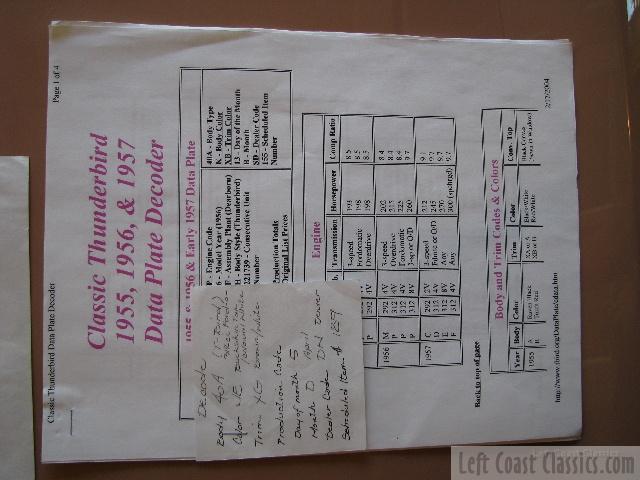 Classic Thunderbird Data Plate Decoder
Page 1 of 4
Classic Thunderbird
1955, 1956, & 1957
Data Plate Decoder
1955 & 1956 & Early 1957 Data Plate
P - Engine Code
6 - Model Year (1956)
F - Assembly Plant (Dearborn)
H - Body Style (Thunderbird)
321739 - Consecutive Unit
Number
40A - Body Type
K - Body Color
XB - Trim Color
13 - Day of the Month
H - Month
SD - Dealer Code
155 - Scheduled Item
Number
Production Totals
Original List Prices
Engine
Transmission Horsepower Comp Ratio
3-speed 193 8.5
Fordomatic 198 8.5
Overdrive 198 8.5
1956 M 292 4V 3-speed 202 8.4
P 312 4V Overdrive 215 8.4
P 312 4V Fordomatic 225
312 8V 3-sp or O/D 260
1957 C 292 2V 3-speed 212
D 312 4V Fomatic or O/D 245 9.7
E 312 8V Any 270 9.7
F 312 4V Any 300 (updated)
Back to top of page
Body and Trim Codes & Colors
Year Body Color Trim Color Conv. Top
1955 A Raven Black XA or A Black/White
Torch Red XB or B Red/White
2/17/2004
Decode
Body 40A
Color
Trim XG Brown/white
Production Code
Day of month 5
Month D April
Dealer Code DN Denver
Scheduled Item # 1259
Left Coast Classics.com